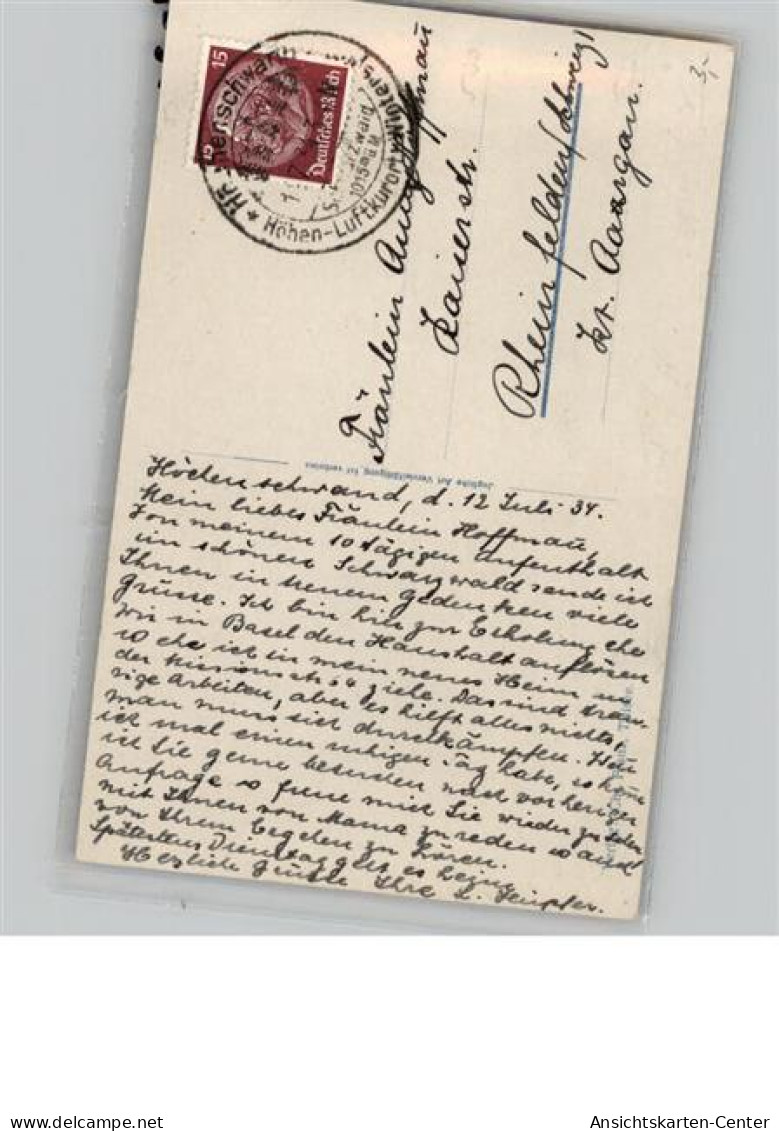 3,-
15
15
Deutsches Reich
Höchenschwand
Schwarzwald
1015 m ü. M.
* Höhen-Luftkurort u. Wintersp
Fräulein Hoffmau
Kaiserstr.
Rheinfelden/Schweiz
Kt. Aargau.
Jegliche Art Vervielfältigung ist verboten
Höchenschwand, d. 12 Juli 34.
Mein liebes Fräulein Hoffmau,
Von meinem 10 tägigen Aufenthalt
im schönen Schwarzwald sende ich
Ihnen in treuem Gedenken viele
Grüsse. Ich bin hier zur Erholung ehe
wir in Basel den Haushalt auflösen
u ehe ich in mein neues Heim in
der Missionsstr 4 ziehe. Das sind trau-
rige Arbeiten, aber es hilft alles nichts,
man muss sich durchkämpfen. Wen
ich mal einen ruhigen Tag habe, so kom
ich Sie gerne besuchen nach vorheriger
Anfrage u freue mich Sie wieder zu sehen
mit Ihnen von Mama zu reden u auch
von Ihrem Ergehen zu hören.
Spätestens Dienstag geht es heim
Herzliche Grüsse Ihre
delcampe.net
Ansichtskarten-Center